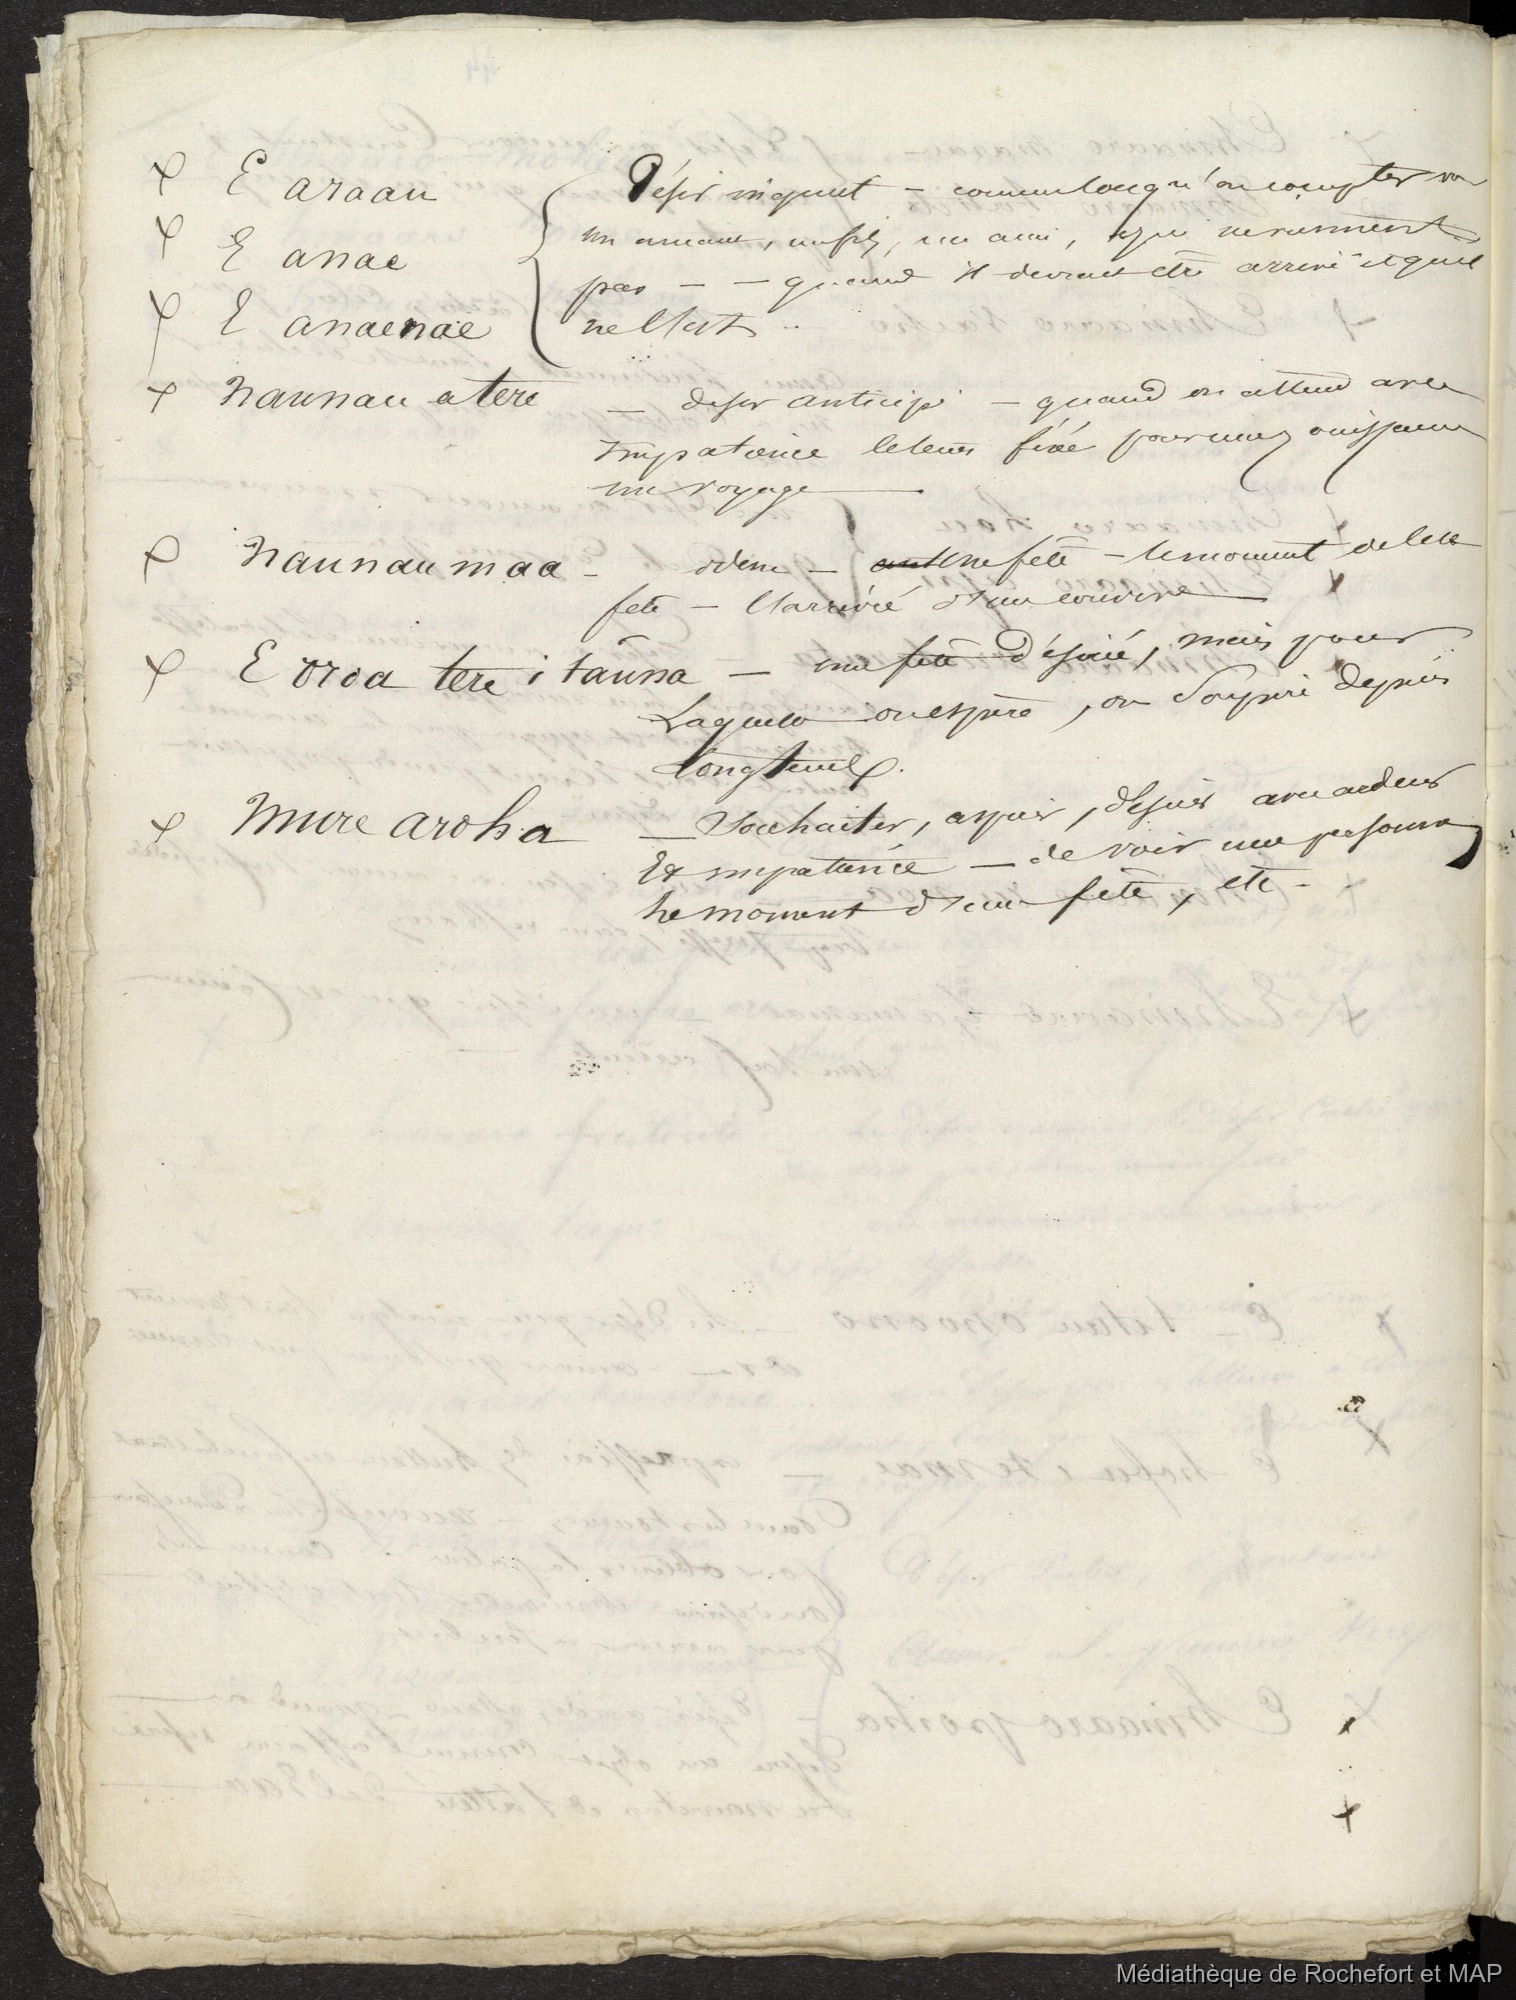 x E araau
x E anae
x E anaenae
Désir inquiet – comme lorsqu'on compte sur
un amant, un fils, un ami, et qui ne viennent
pas – – quand il devrait être arrivé et qu'il
ne l'est –
x naunau a tere – desir anticipé – quand on attend avec
impatience le tems fixé pour une jouissance
un voyage
x naunau maa – idem – une fête – le moment de cette
fete – l'arrivée d'un convive
x E oroa tere i taüna – une fete désirée, mais pour
Laquelle on espère, on Soupire depuis
Longtems.
x mure aroha – Souhaiter, aspirer, desirer avec ardeur
Et impatience – de voir une personne
le moment d'une fête, etc –
Médiathèque de Rochefort et MAP